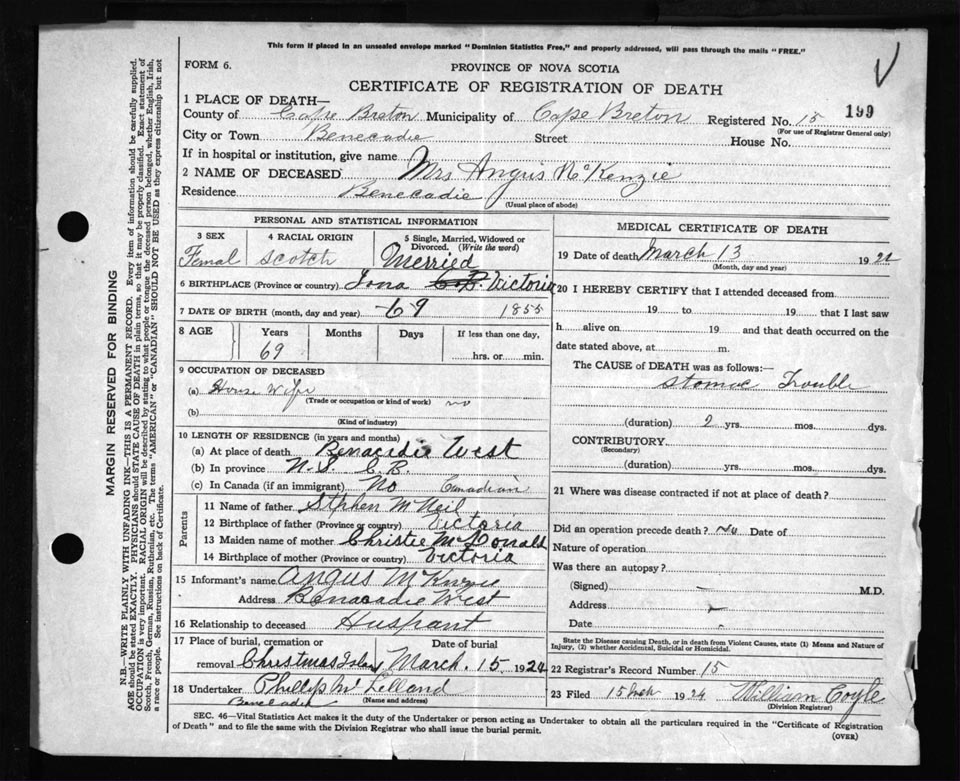 This form if placed in an unsealed envelope marked "Dominion Statistics Free," and properly addressed, will pass through the mails "FREE."
FORM 6.
PROVINCE OF NOVA SCOTIA
CERTIFICATE OF REGISTRATION OF DEATH
1 PLACE OF DEATH—
County of Cape Breton Municipality of Cape Breton Registered No. 15 199
(For use of Registrar General only)
City or Town Benecadie Street House No.
If in hospital or institution, give name
2 NAME OF DECEASED Mrs Angus McKenzie
Residence Benecadie
(Usual place of abode)
PERSONAL AND STATISTICAL INFORMATION
3 SEX 4 RACIAL ORIGIN 5 Single, Married, Widowed or Divorced. (Write the word)
Femal Scotch Merried
6 BIRTHPLACE (Province or country) Iona C.B. Victoria
7 DATE OF BIRTH (month, day and year) 69 1855
8 AGE Years Months Days If less than one day,
69 hrs. or min.
9 OCCUPATION OF DECEASED
(a) House Wife
(Trade or occupation or kind of work)
(b)
(Kind of industry)
10 LENGTH OF RESIDENCE (in years and months)
(a) At place of death Benacadie West
(b) In province N.S. C.B.
(c) In Canada (if an immigrant) No Canadian
Parents
11 Name of father Stphen McNeil
12 Birthplace of father (Province or country) Victoria
13 Maiden name of mother Christie McDonald
14 Birthplace of mother (Province or country) Victoria
15 Informant's name Angus McKnzie
Address Benacadie West
16 Relationship to deceased Huspant
17 Place of burial, cremation or removal Date of burial
Christmas Islan March. 15 1924
18 Undertaker Phillip Mc Lelland
Benecadie (Name and address)
MEDICAL CERTIFICATE OF DEATH
19 Date of death March 13 192
(Month, day and year)
20 I HEREBY CERTIFY that I attended deceased from
19 to 19 that I last saw
h alive on 19 and that death occurred on
date stated above, at m.
The CAUSE of DEATH was as follows:—
Stomac Trouble
(duration) 2 yrs. mos. dys.
CONTRIBUTORY
(Secondary)
(duration) yrs. mos. dys.
21 Where was disease contracted if not at place of death?
Did an operation precede death? No Date of
Nature of operation
Was there an autopsy?
(Signed) M.D.
Address
Date
State the Disease causing Death, or in death from Violent Causes, state (1) Means and Nature of
Injury, (2) whether Accidental, Suicidal or Homicidal.
22 Registrar's Record Number 15
23 Filed 15 1924 William Coyle
(Division Registrar)
SEC. 46—Vital Statistics Act makes it the duty of the Undertaker or person acting as Undertaker to obtain all the particulars required in the "Certificate of Registration
of Death" and to file the same with the Division Registrar who shall issue the burial permit.
(OVER)
MARGIN RESERVED FOR BINDING
N.B.—WRITE PLAINLY WITH UNFADING INK—THIS IS A PERMANENT RECORD. Every item of information should be carefully supplied.
AGE should be stated EXACTLY. PHYSICIANS should STATE CAUSE OF DEATH in plain terms, so that it may be properly classified. Exact statement of
OCCUPATION is very important. RACIAL ORIGIN will be described by stating to what people or tongue the deceased person belonged, whether English, Irish,
Scotch, French, German, Russian, Ruthenian, etc. The terms "AMERICAN" or "CANADIAN" SHOULD NOT BE USED as they express citizenship but not
a race or people. See instructions on back of Certificate.